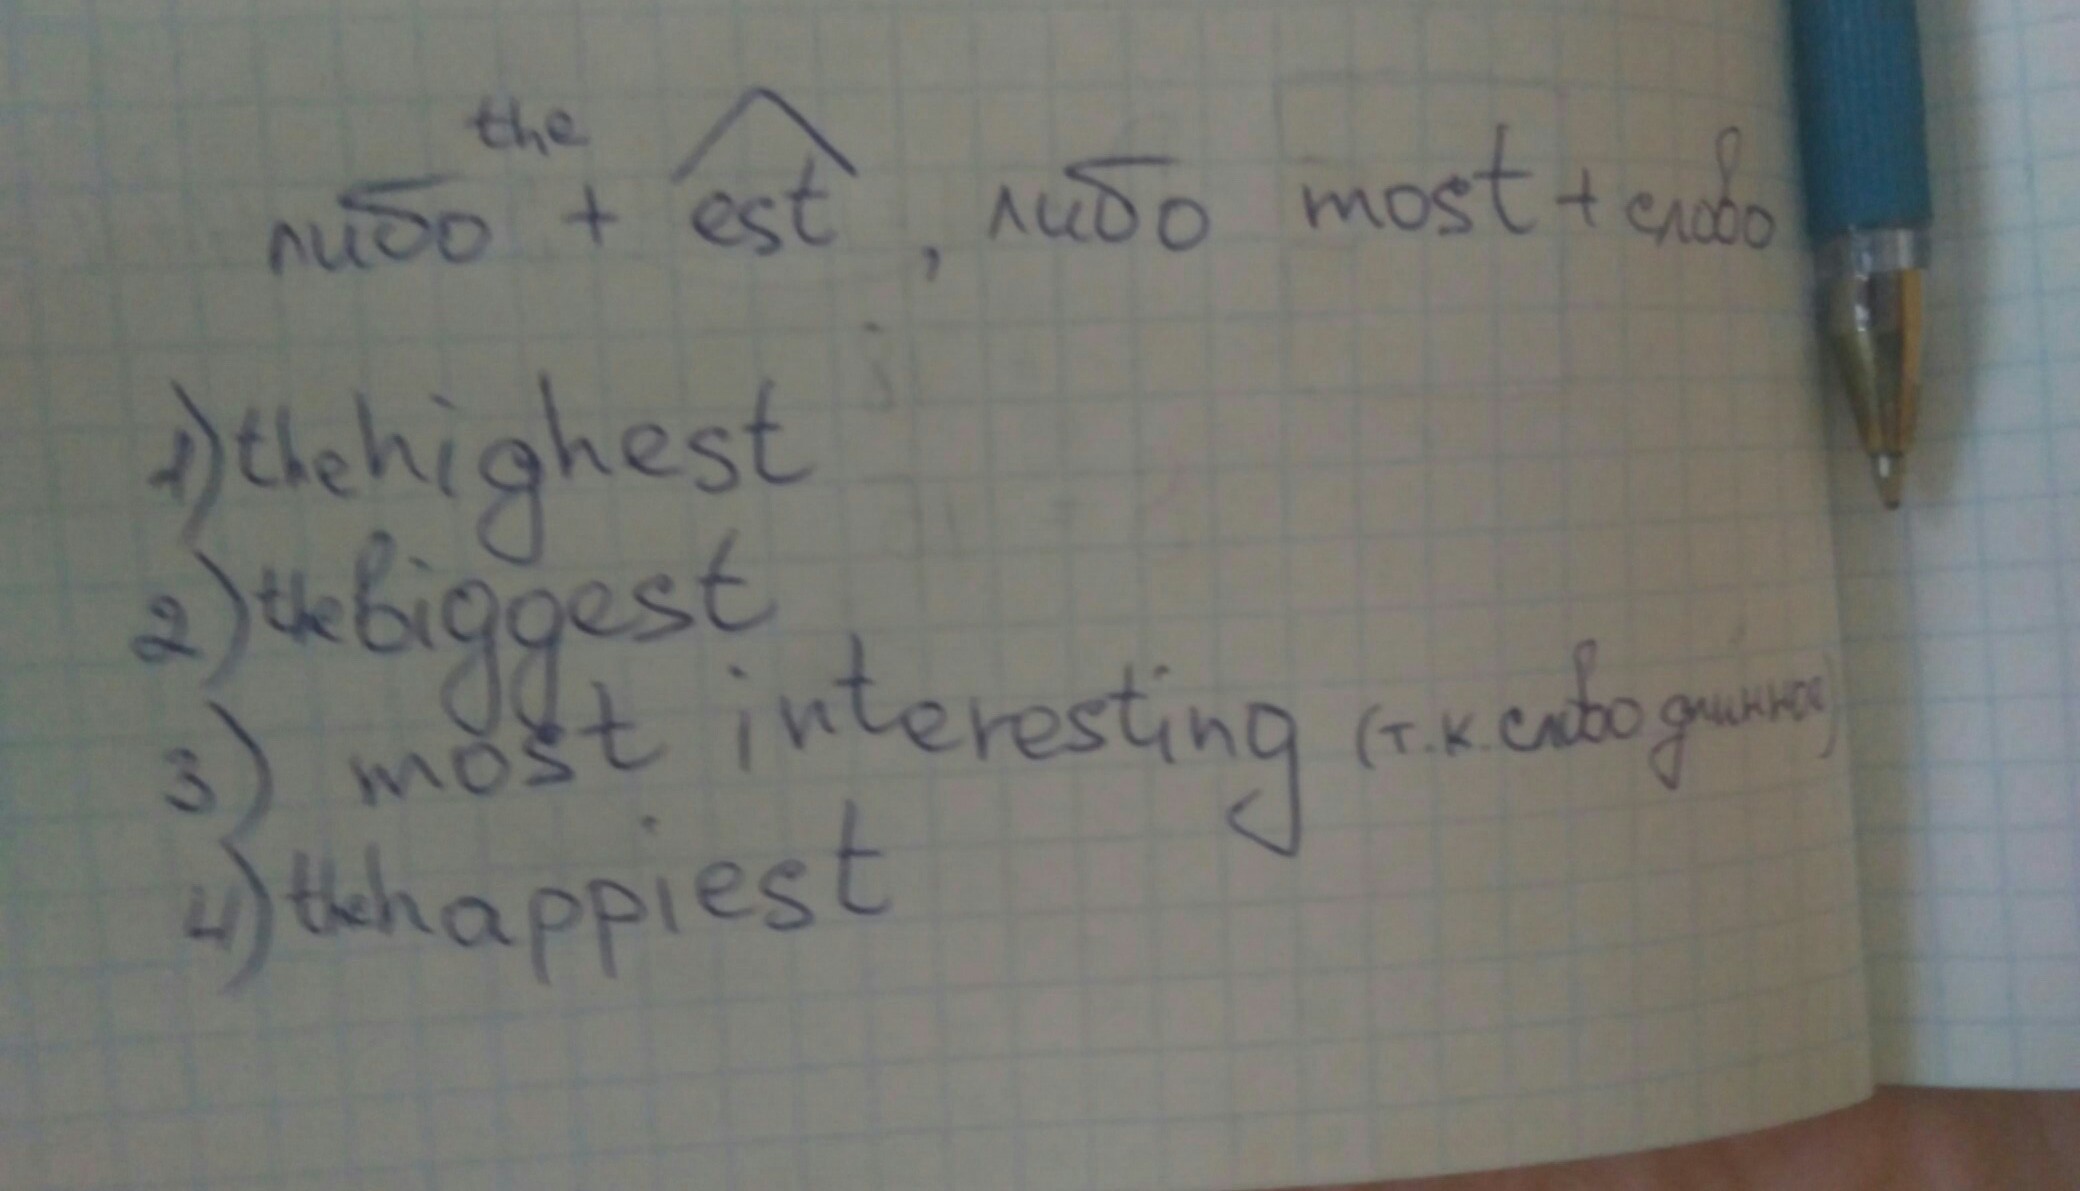 the
либо + est, либо most + слово
1) the highest
2) the biggest
3) most interesting (т.к. слово длинное)
4) the happiest